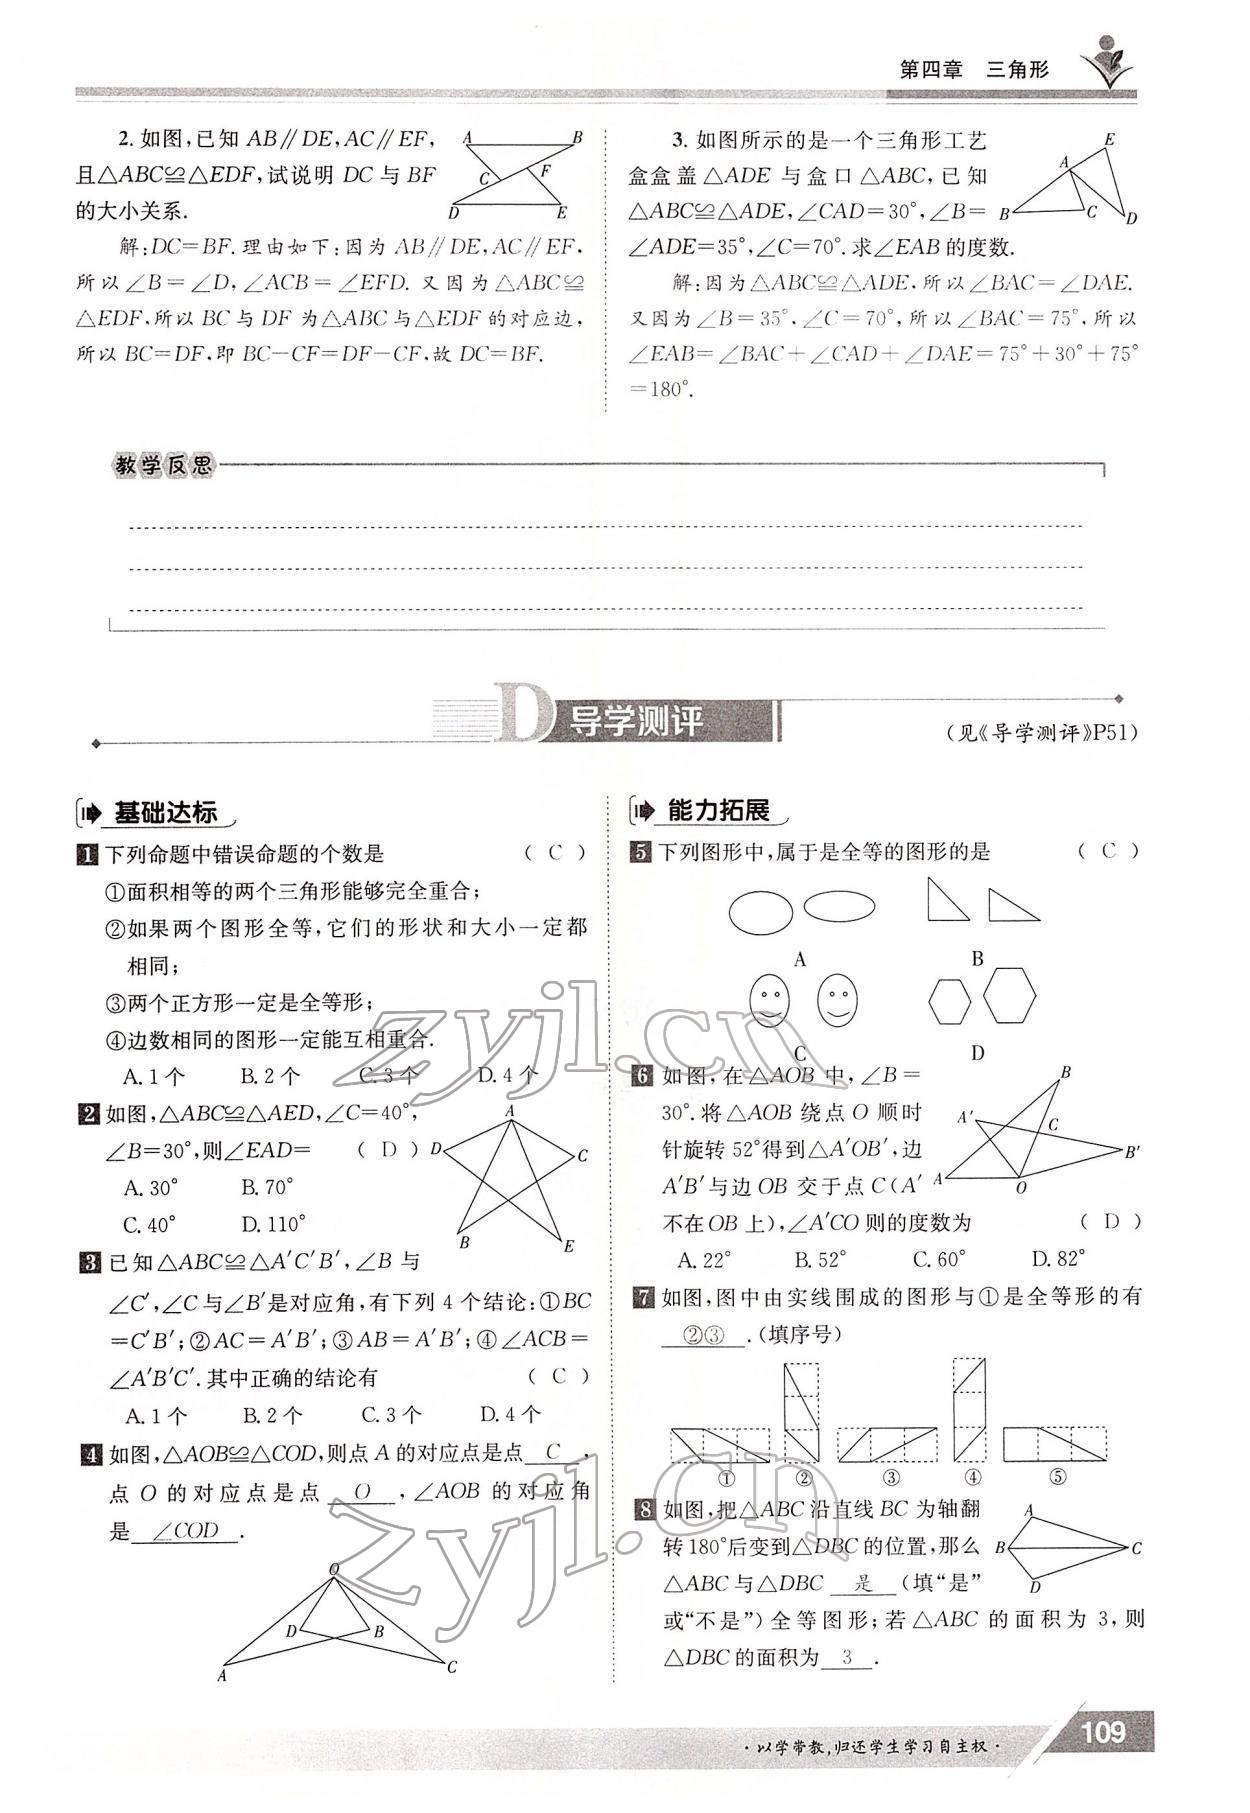 第四章 三角形
2. 如图,已知 AB∥DE,AC∥EF,
且△ABC≌△EDF,试说明 DC 与 BF
的大小关系.
A B C F D E
解:DC=BF.理由如下:因为 AB∥DE,AC∥EF,
所以∠B=∠D,∠ACB=∠EFD.又因为△ABC≌
△EDF,所以 BC 与 DF 为△ABC与△EDF 的对应边,
所以 BC=DF,即 BC-CF=DF-CF,故 DC=BF.
3. 如图所示的是一个三角形工艺
盒盒盖△ADE 与盒口△ABC,已知
△ABC≌△ADE,∠CAD=30°,∠B=
∠ADE=35°,∠C=70°.求∠EAB 的度数.
E A B C D
解:因为△ABC≌△ADE,所以∠BAC=∠DAE.
又因为∠B=35°,∠C=70°,所以∠BAC=75°,所以
∠EAB=∠BAC+∠CAD+∠DAE=75°+30°+75°
=180°.
教学反思
D 导学测评
(见《导学测评》P51)
基础达标
1 下列命题中错误命题的个数是 ( C )
①面积相等的两个三角形能够完全重合;
②如果两个图形全等,它们的形状和大小一定都
相同;
③两个正方形一定是全等形;
④边数相同的图形一定能互相重合.
A. 1个 B. 2个 C. 3个 D. 4个
2 如图,△ABC≌△AED,∠C=40°,
∠B=30°,则∠EAD= ( D )
A. 30° B. 70°
C. 40° D. 110°
A D C B E
3 已知△ABC≌△A′C′B′,∠B 与
∠C′,∠C与∠B′是对应角,有下列 4 个结论:①BC
=C′B′;②AC=A′B′;③AB=A′B′;④∠ACB=
∠A′B′C′.其中正确的结论有 ( C )
A. 1个 B. 2个 C. 3个 D. 4个
4 如图,△AOB≌△COD,则点 A 的对应点是点 C .
点 O 的对应点是点 O ,∠AOB 的对应角
是 ∠COD .
O D B A C
能力拓展
5 下列图形中,属于是全等的图形的是 ( C )
A B
C D
6 如图,在△AOB 中,∠B=
30°.将△AOB 绕点 O 顺时
针旋转 52°得到△A′OB′,边
A′B′与边 OB 交于点 C(A′
不在 OB 上),∠A′CO 则的度数为 ( D )
A. 22° B. 52° C. 60° D. 82°
B A′ C B′ A O
7 如图,图中由实线围成的图形与①是全等形的有
②③ .(填序号)
① ② ③ ④ ⑤
8 如图,把△ABC 沿直线 BC 为轴翻
转 180°后变到△DBC 的位置,那么
△ABC 与△DBC 是 (填“是”
或“不是”)全等图形;若△ABC 的面积为 3,则
△DBC 的面积为 3 .
A B C D
zyjl.cn
zyjl.cn
·以学带教,归还学生学习自主权·
109